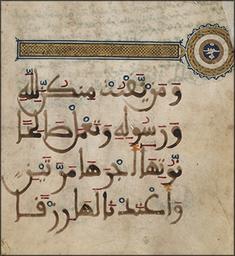 وَمَن يَقْنُتْ مِنكُنَّ لِلَّهِ
وَرَسُولِهِ وَتَعْمَلْ صَٰلِحًا
نُّؤْتِهَا أَجْرَهَا مَرَّتَيْنِ
وَأَعْتَدْنَا لَهَا رِزْقًا